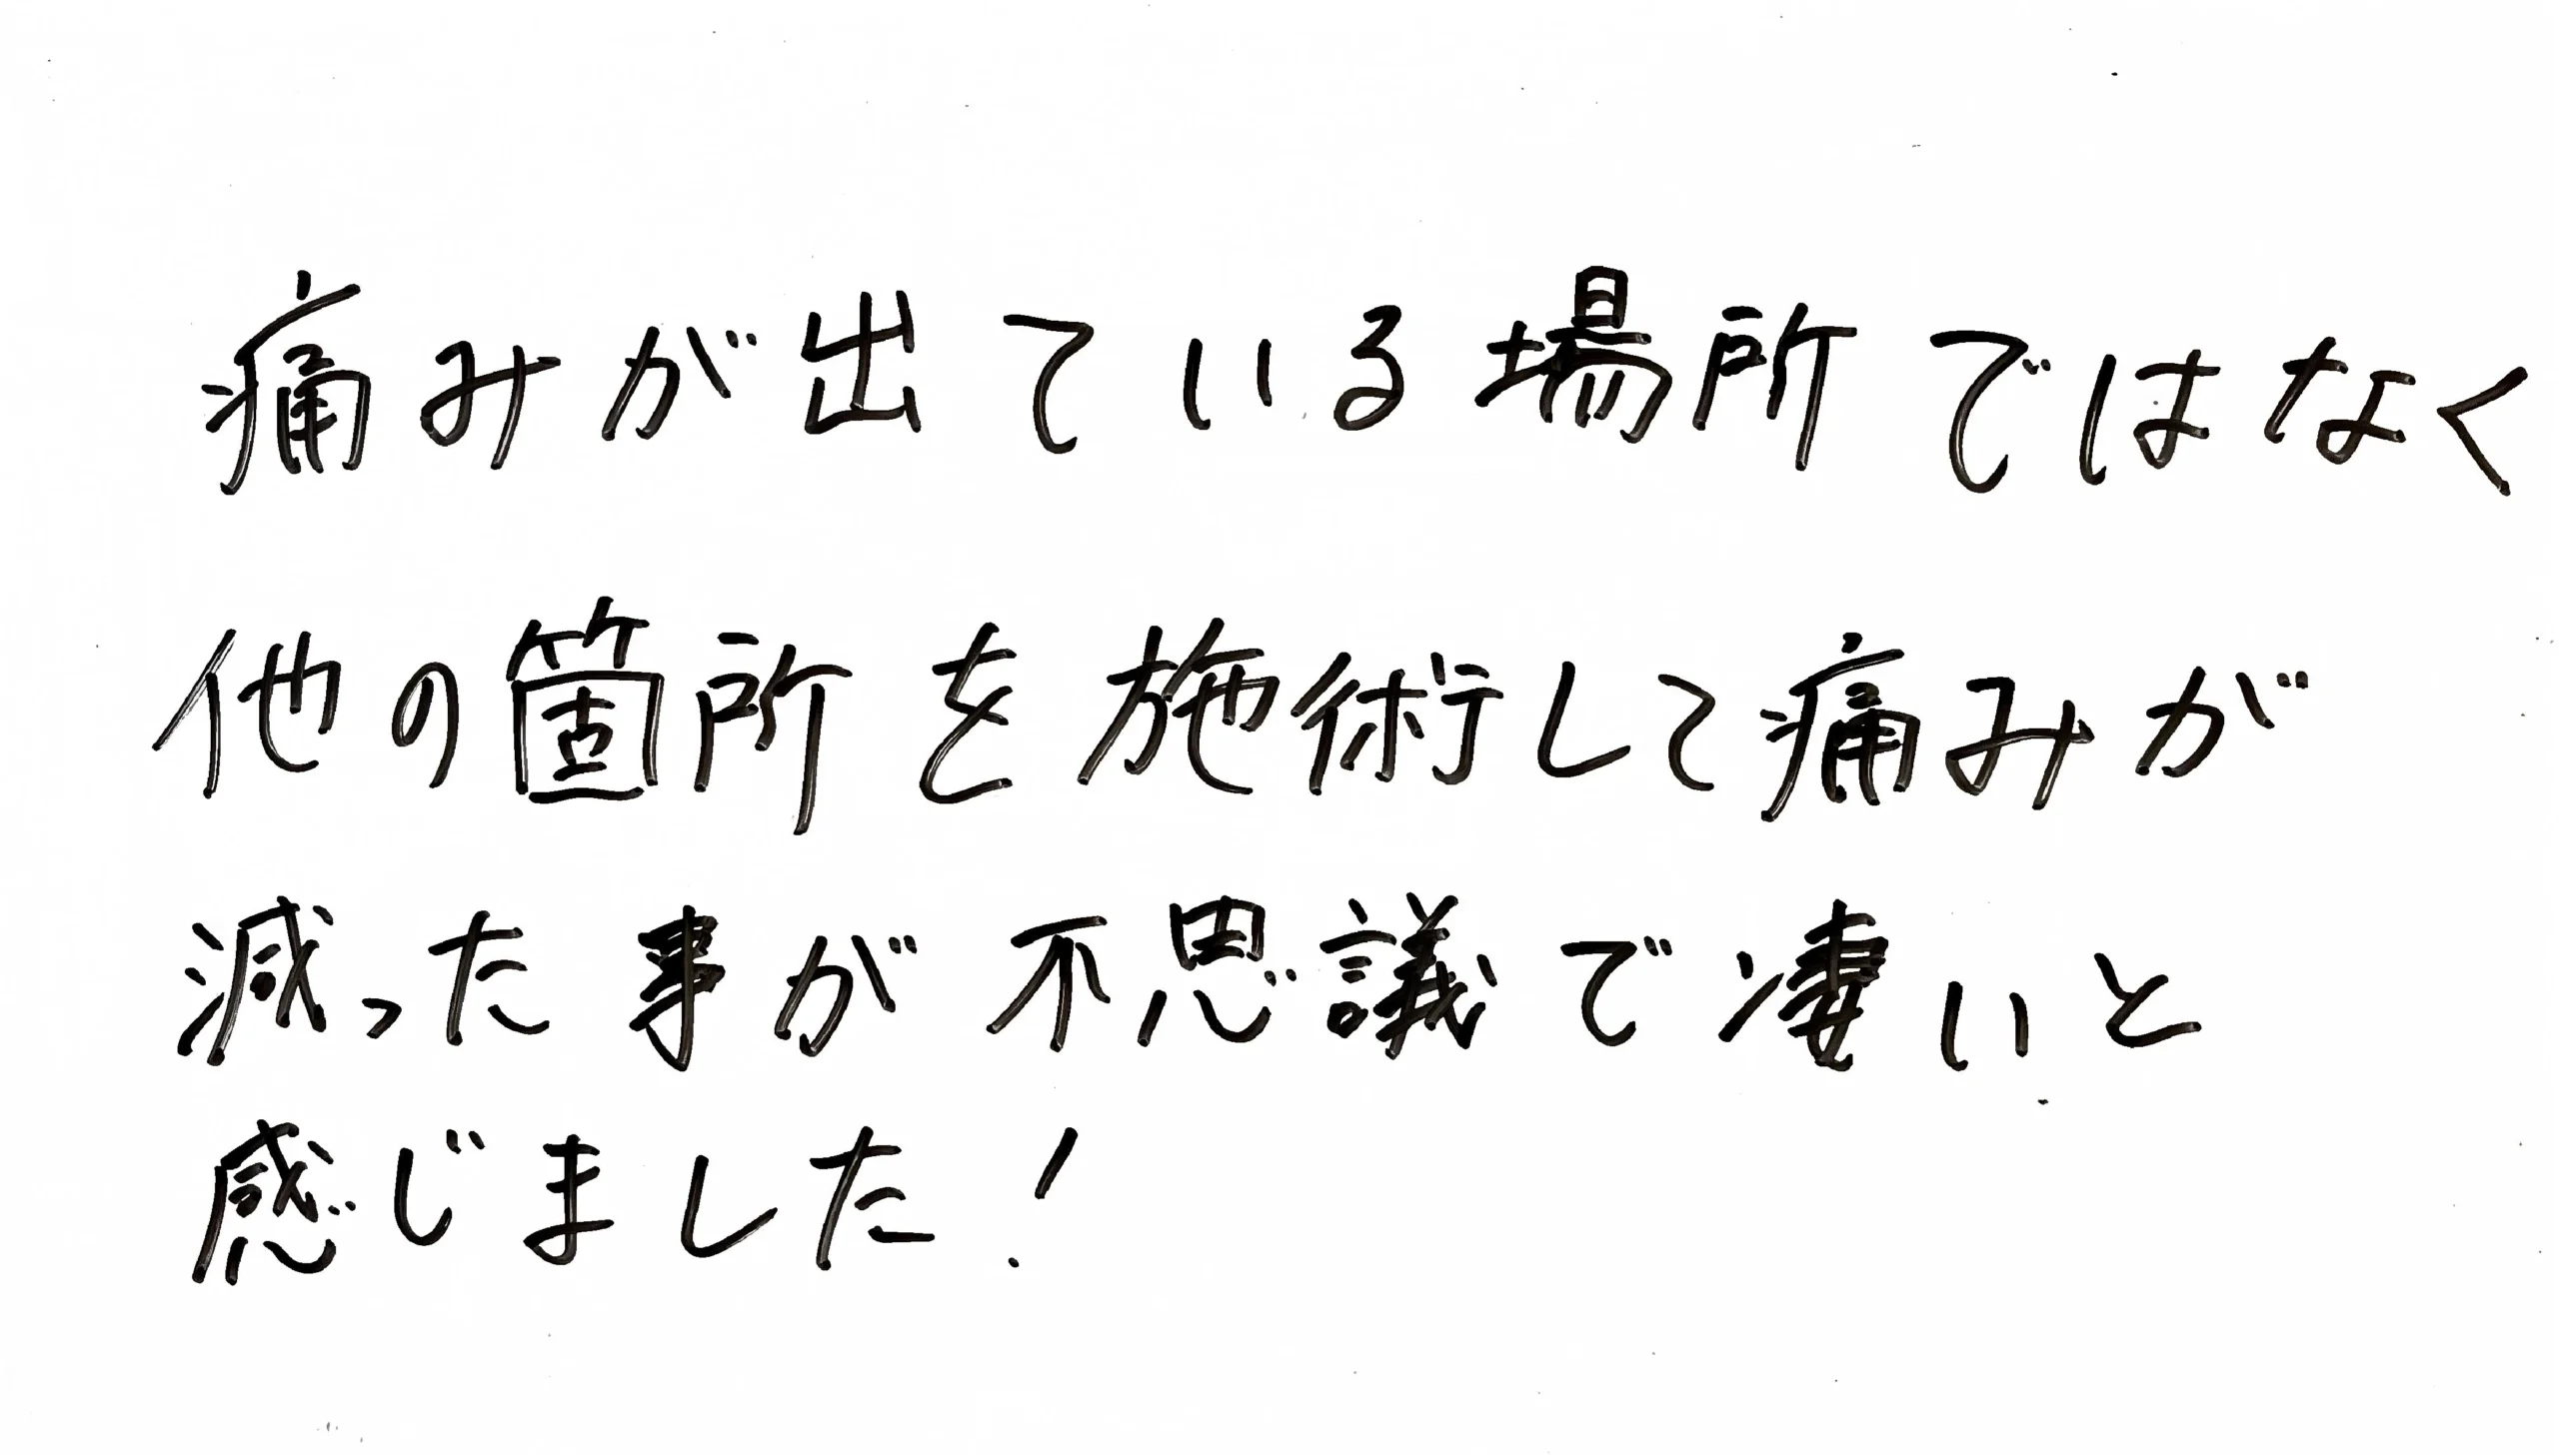 痛みが出ている場所ではなく
他の箇所を施術して痛みが
減った事が不思議で凄いと
感じました!